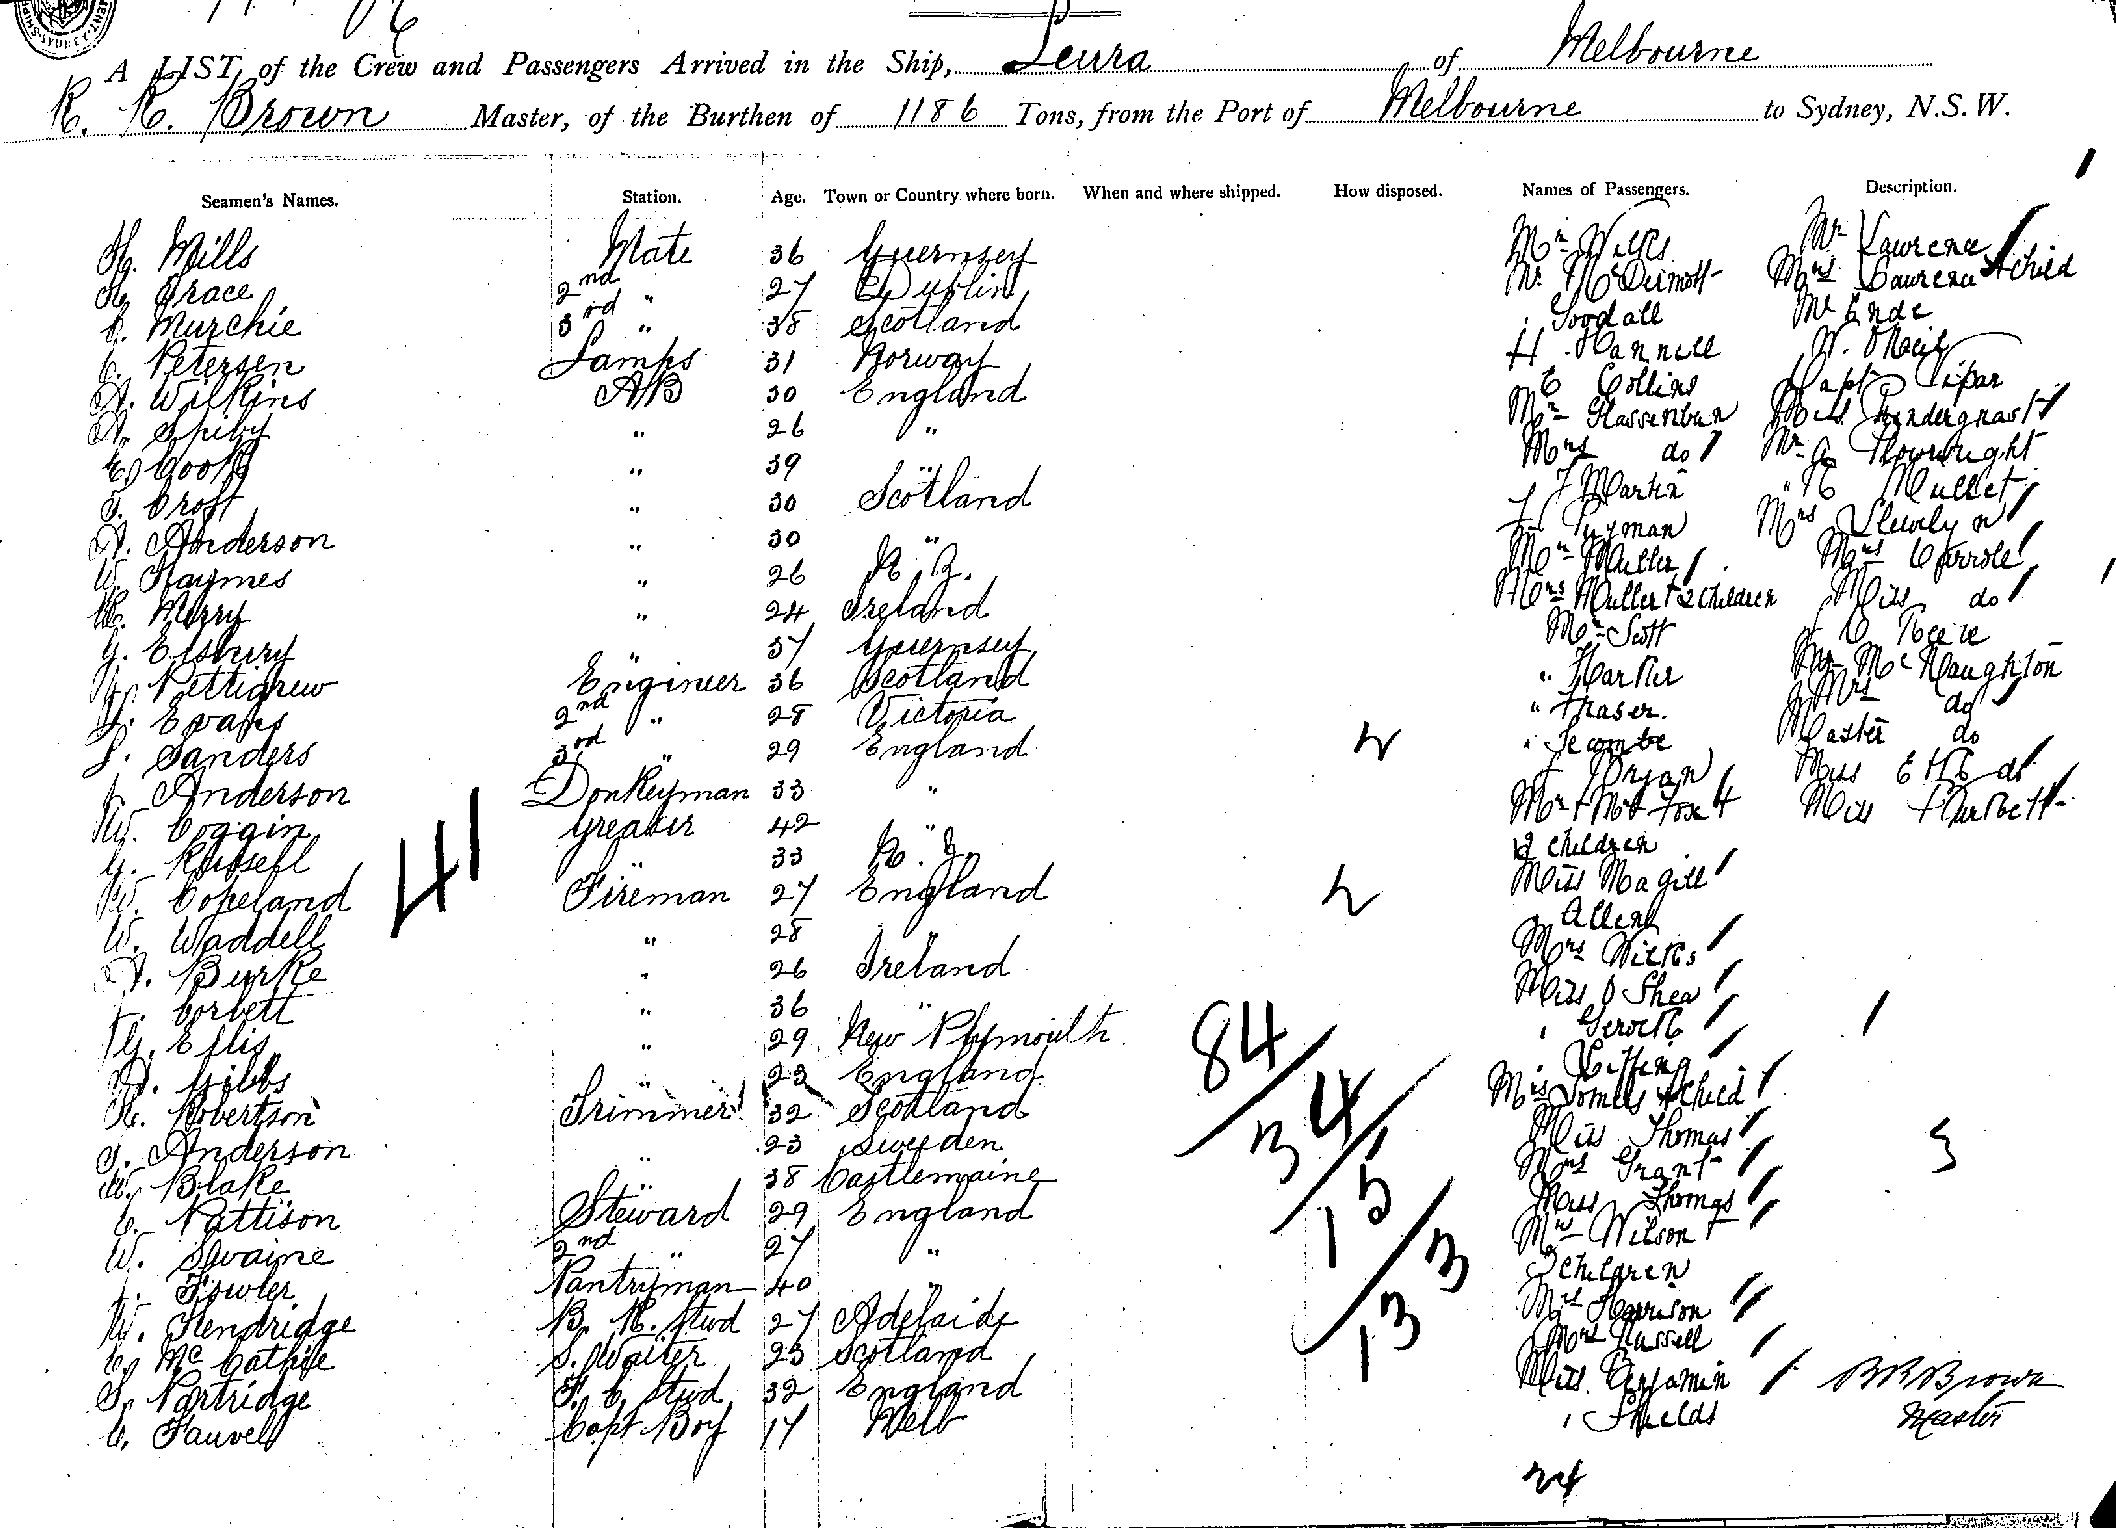 A LIST of the Crew and Passengers Arrived in the Ship, Leura of Melbourne
R. R. Brown Master, of the Burthen of 1186 Tons, from the Port of Melbourne to Sydney, N.S.W.
Seamen's Names. Station. Age. Town or Country where born. When and where shipped. How disposed. Names of Passengers. Description.
H. Mills Mate 36 Guernsey
Grace 2nd " 27 Dublin
C. Murchie 3rd " 38 Scotland
C. Petersen Lamps 31 Norway
A. Wilkins AB 30 England
A. Spiby " 26 "
C. Cook " 39 "
T. Croft " 30 Scotland
A. Anderson " 30 "
W. Haymes " 26 N.Z.
Merry " 24 Ireland
G. Elsbury " 37 Guernsey
Pettigrew Engineer 36 Scotland
Evans 2nd " 28 Victoria
Sanders 3rd " 29 England
J. Anderson Donkeyman 33 "
W. Coggin Greaser 42 "
G. Russell " 33 N.Z.
W. Copeland Fireman 27 England
W. Waddell " 28 "
A. Burke " 26 Ireland
J. Corbett " 36 "
G. Ellis " 29 New Plymouth
A. Gibbs " 23 England
R. Robertson Trimmer 32 Scotland
Anderson " 23 Sweden
W. Blake " 38 Castlemaine
C. Pattison Steward 29 England
W. Swaine 2nd " 27 "
J. Fowler Pantryman 40 "
W. Kendridge B. R. Stwd 27 Adelaide
C. McCathie S. Waiter 23 Scotland
S. Partridge F. C. Stwd 32 England
C. Fauvel Capt Boy 17 Melb
41
84
34
15
3
133
Mr Wilks
Mr McDermott
" Goodall
H. Hannell
C Collins
Mr Hassenbun
Mrs do
F Martin
Pryman
Mr Muller
Mrs Muller + 2 Children
Mr Scott
" Harker
" Fraser.
" Secombe
J Bryan
Mr + Mrs Fox +
2 Children
Miss Magill
Allen
Mrs Wilks
Miss O Shea
Miss Thomas
Mrs Grant
Miss Thomas
Mrs Wilson +
3 Children
Mrs Harrison
Mrs Russell
Miss Benjamin
" Shields
24
Mr Lawrence
Mrs Lawrence + child
Mr Ende
W. ONeil
Capt Pipar
Miss Prendergnast
Mullet
Mrs Llewelyn
Mrs Carrole
Miss do
Mr McNaughton
Mrs do
Master do
Miss do
Miss
R R Brown
Master